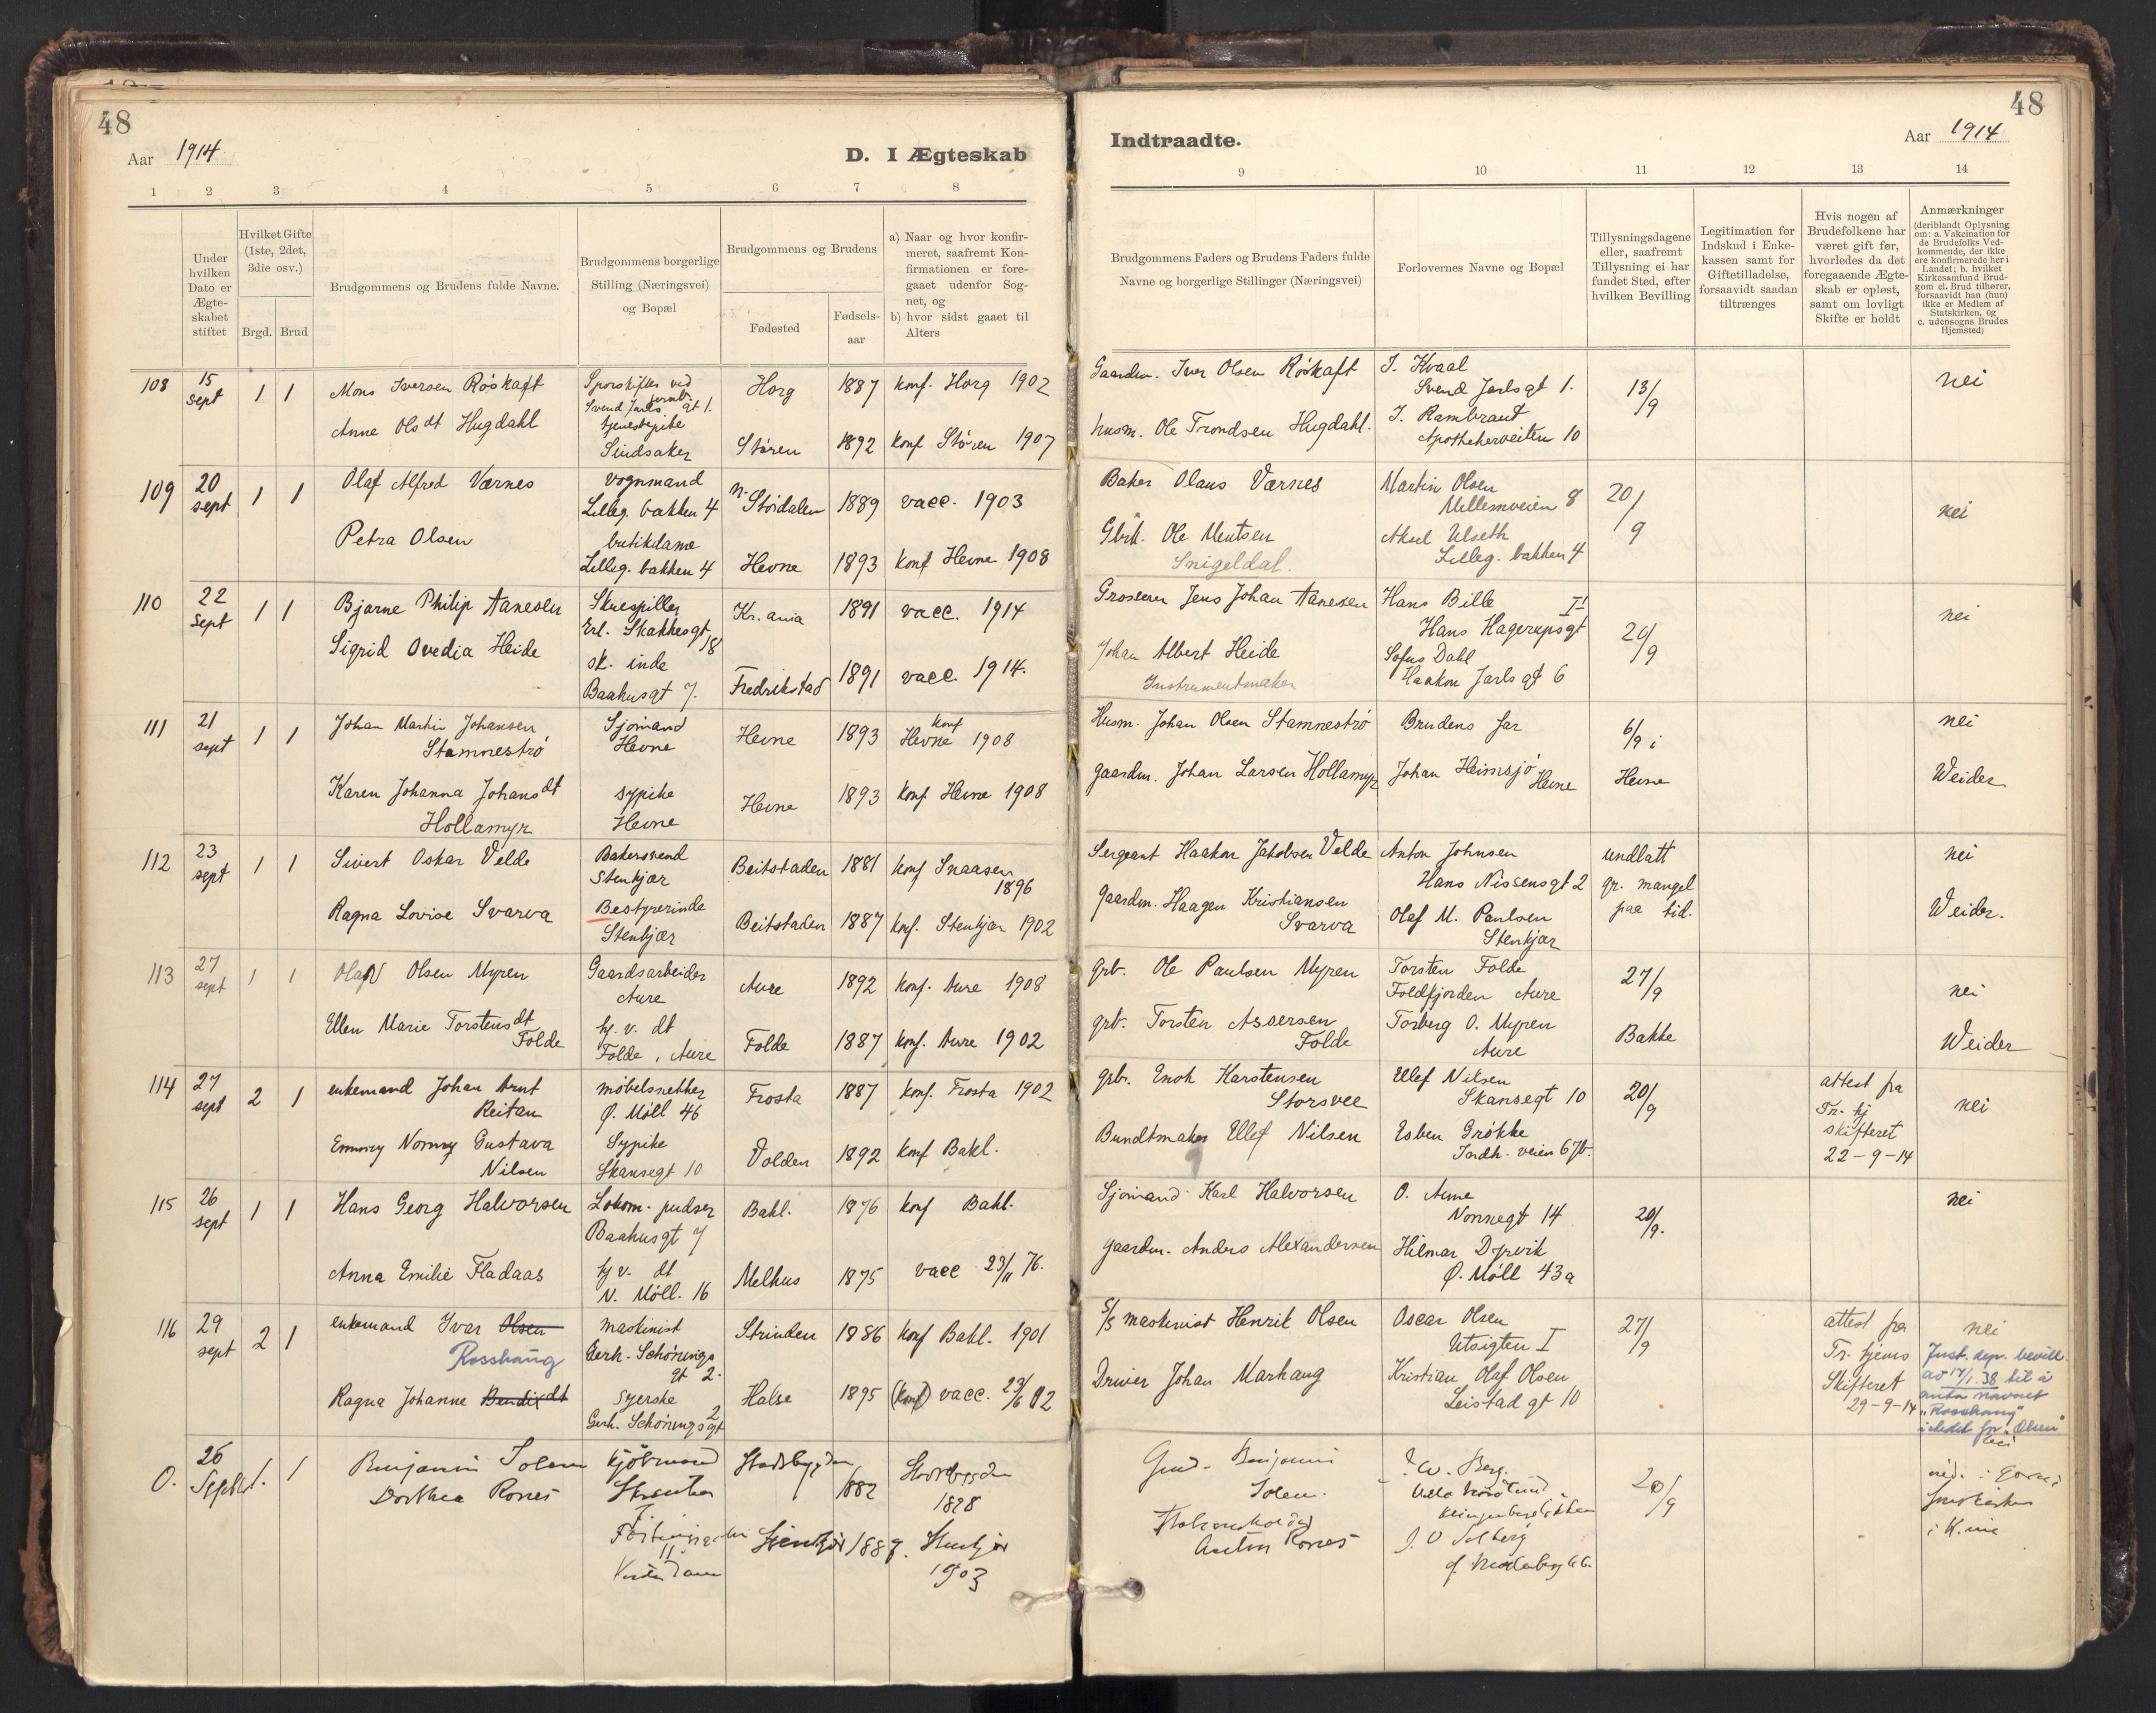 48
Aar 1914
D. I Ægteskab
1 2 3 4 5 6 7 8
Under hvilken Dato er Ægte-skabet stiftet
Hvilket Gifte (1ste, 2det, 3die osv.)
Brgd. Brud
Brudgommens og Brudens fulde Navne.
Brudgommens borgerlige Stilling (Næringsvei) og Bopæl
Brudgommens og Brudens
Fødested
Fødsels-aar
a) Naar og hvor konfir-meret, saafremt Kon-firmationen er fore-gaaet udenfor Sog-net, og
b) hvor sidst gaaet til Alters
108 15 sept 1 1 Mons Iversen Röskaft
Sporskifter ved jernb. Svend Jarls gt 1.
Horg 1887 konf. Horg 1902
Anne Olsdt Hugdahl
tjenestepike
Sindsaker
Stören 1892 konf Stören 1907
109 20 sept 1 1 Olaf Alfred Værnes
vognmand
Lilleg. bakken 4
N. Stördalen 1889 vacc. 1903
Petra Olsen
butikdame
Lilleg. bakken 4
Hevne 1893 konf Hevne 1908
110 22 sept 1 1 Bjarne Philip Aanesen
Skuespiller
Erl. Skakkesgt 18
Kr.ania 1891 vacc. 1914
Sigrid Ovedia Heide
sk. inde
Baahusgt 7.
Fredrikstad 1891 vacc. 1914.
111 21 sept 1 1 Johan Martin Johansen
Stamneströ
Sjömand
Hevne
Hevne 1893 konf Hevne 1908
Karen Johanna Johansdt
Hollamyr
sypike
Hevne
Hevne 1893 konf. Hevne 1908
112 23 sept 1 1 Sivert Oskar Velde
Bakersvend
Stenkjær
Beitstaden 1881 konf Snaasen
1896
Ragna Lovise Svarva
Bestyrerinde
Stenkjær
Beitstaden 1887 konf. Stenkjær 1902
113 27 sept 1 1 Olav Olsen Myren
Gaardsarbeider
Aure
Aure 1892 konf. Aure 1908
Ellen Marie Torstensdt
Folde
hj. v. dt
Folde, Aure
Folde 1887 konf. Aure 1902
114 27 sept 2 1 enkemand Johan Arnt
Reitan
möbelsnekker
Ø. Möll 46
Frosta 1887 konf. Frosta 1902
Emmy Nonny Gustava
Nilsen
Sypike
Skansegt 10
Volden 1892 konf Bakl.
115 26 sept 1 1 Hans Georg Halvorsen
Lokom. pudser
Baahusgt 7
Bakl. 1876 konf Bakl.
Anna Emilie Fladaas
hj v. dt
N. Möll. 16
Melhus 1875 vacc 23/11 76.
116 29 sept 2 1 enkemand Ivar Olsen
Rosshaug
maskinist
Gerh. Schönings gt 2.
Strinden 1886 konf Bakl. 1901
Ragna Johanne Bendixdt
syerske
Gerh. Schönings gt 2
Halse 1895 (konf) vacc. 23/6 02
O. 26 Septbr 1. 1 Benjamin Solem
Dorthea Rones
Kjöbmand
Stadsbygden 1882
Stadsbygden
1898
Stenkjær 1887. Stenkjær
1903
48
Indtraadte.
Aar 1914
9 10 11 12 13 14
Brudgommens Faders og Brudens Faders fulde Navne og borgerlige Stillinger (Næringsvei)
Forlovernes Navne og Bopæl
Tillysningsdagene eller, saafremt Tillysning ei har fundet Sted, efter hvilken Bevilling
Legitimation for Indskud i Enke-kassen samt for Giftetilladelse, forsaavidt saadan tiltrænges
Hvis nogen af Brudefolkene har været gift før, hvorledes da det foregaaende Ægte-skab er opløst, samt om lovligt Skifte er holdt
Anmærkninger
(deriblandt Oplysning om: a. Vakcination for de Brudefolks Ved-kommende, der ikke ere konfirmerede her i Landet; b. hvilket Kirkesamfund Brud-gom el. Brud tilhører, forsaavidt han (hun) ikke er Medlem af Statskirken, og c. udensogns Brudes Hjemsted)
Gaardm. Iver Olsen Röskaft
J. Kvaal
Svend Jarlsgt 1.
13/9
nei
husm. Ole Trondsen Hugdahl.
J. Rambraut
Apothekerveiten 10
Baker Olaus Værnes
Martin Olsen
Mellemveien 8
20/9
nei
Gbrk. Ole Mentsen
Snigeldal.
Aksel Ulseth
Lilleg. bakken 4
Grosserer Jens Johan Aanesen
Hans Bille
Hans Hagerupsgt 1
20/9
nei
Johan Albert Heide
Instrumentmaker
Sofus Dahl
Haakon Jarls gt 6
Husm. Johan Olsen Stamneströ
Brudens far
6/9 i
nei
Gaardm. Johan Larsen Hollamyr
Johan Heimsjö
Hevne
Hevne
Weider
Sergeant Haakon Jakobsen Velde
Anton Johnsen
Hans Nissensgt 2
undlatt gr. mangel paa tid.
nei
Gaardm. Haagen Kristiansen
Svarva
Olaf M. Paulsen
Stenkjær
Weider.
grb. Ole Paulsen Myren
Torsten Folde
Foldfjorden Aure
27/9
nei
grb. Torsten Assersen
Folde
Torberg O. Myren
Aure
Bakke
Weider
grb. Enok Karstensen
Storsvee
Ellef Nilsen
Skansegt 10
20/9
attest fra Tr. hj skifteret 22-9-14
nei
Bundtmaker Ellef Nilsen
Esben Grökke
Indh. veien 67b.
Sjömand Karl Halvorsen
O. Aune
Nonnegt 14
20/9.
nei
gaardm. Anders Alexandersen
Hilmar Dyrvik
Ø. Möll 43a
S/S maskinist Henrik Olsen
Oscar Olsen
Utsigten I
27/9
attest fra Tr. hjems Skifteret 29-9-14
nei
Just. dep. bevill. av 17/1. 38 til å anta navnet "Rosshaug" istedet for "Olsen"
Driver Johan Marhaug
Kristian Olaf Olsen
Leistad gt 10
Benjamin
Solem.
20/9
Anton Rones